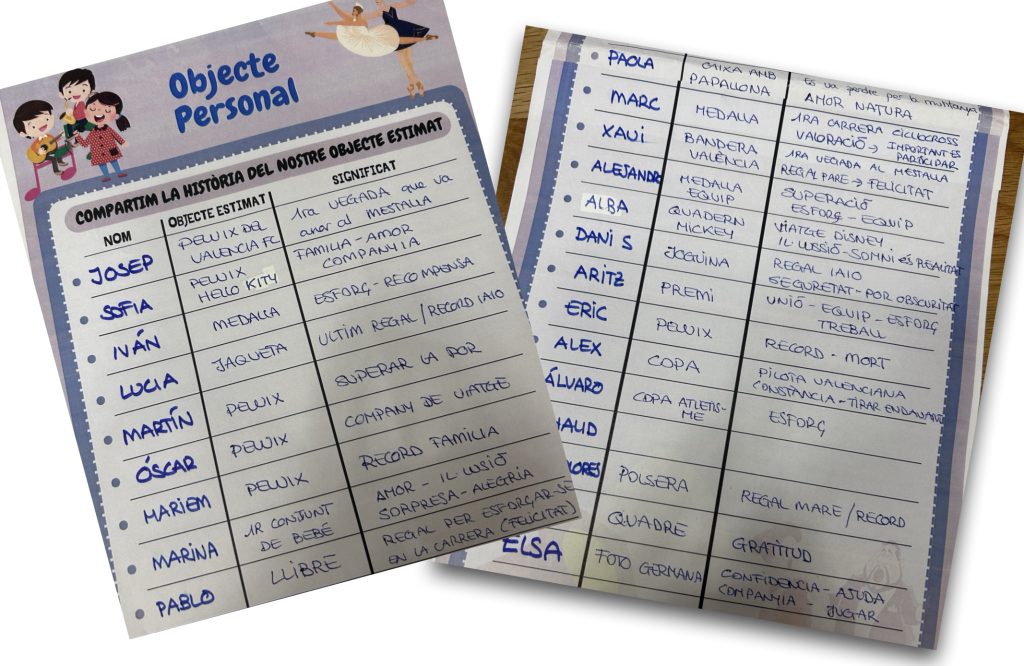 Objecte
Personal
COMPARTIM LA HISTÒRIA DEL NOSTRE OBJECTE ESTIMAT
NOM
OBJECTE ESTIMAT
SIGNIFICAT
JOSEP
PELUIX DEL
VALENCIA FC
1ra VEGADA que va
anar al MESTALLA
SOFIA
PELUIX
HELLO KITY
FAMILIA - AMOR
COMPANYIA
IVÁN
MEDALLA
ESFORÇ - RECOMPENSA
LUCIA
JAQUETA
ULTIM REGAL / RECORD IAIO
MARTÍN
PELUIX
SUPERAR LA POR
ÓSCAR
PELUIX
COMPANY DE VIATGE
MARIEM
PELUIX
RECORD FAMILIA
MARINA
1R CONJUNT
DE BEBÉ
AMOR - IL·LUSIÓ
SORPRESA - ALEGRIA
PABLO
LLIBRE
REGAL PER ESFORÇAR-SE
EN LA CARRERA (FELICITAT)
PAOLA
CAIXA AMB
PAPALLONA
Es va perdre per la muntanya
AMOR NATURA
MARC
MEDALLA
1RA CARRERA CICLOCROSS
VALORACIÓ → IMPORTANT ÉS
PARTICIPAR
XAVI
BANDERA
VALÈNCIA
1RA VEGADA AL MESTALLA
REGAL PARE → FELICITAT
ALEJANDRO
MEDALLA
EQUIP
SUPERACIÓ
ESFORÇ - EQUIP
ALBA
QUADERN
MICKEY
VIATGE DISNEY
IL·LUSSIÓ - SOMNI és REALITAT
DANI S
JOGUINA
REGAL IAIO
SEGURETAT - POR OBSCURITAT
ARITZ
PREMI
UNIÓ - EQUIP - ESFORÇ
TREBALL
ERIC
PELUIX
RECORD - MORT
ALEX
COPA
PILOTA VALENCIANA
CONSTÀNCIA - TIRAR ENDAVANT
ÁLVARO
COPA ATLETIS-
ME
ESFORÇ
POLSERA
REGAL MARE / RECORD
QUADRE
GRATITUD
ELSA
FOTO GERMANA
CONFIDENCIA - AJUDA
COMPANYIA - JUGAR